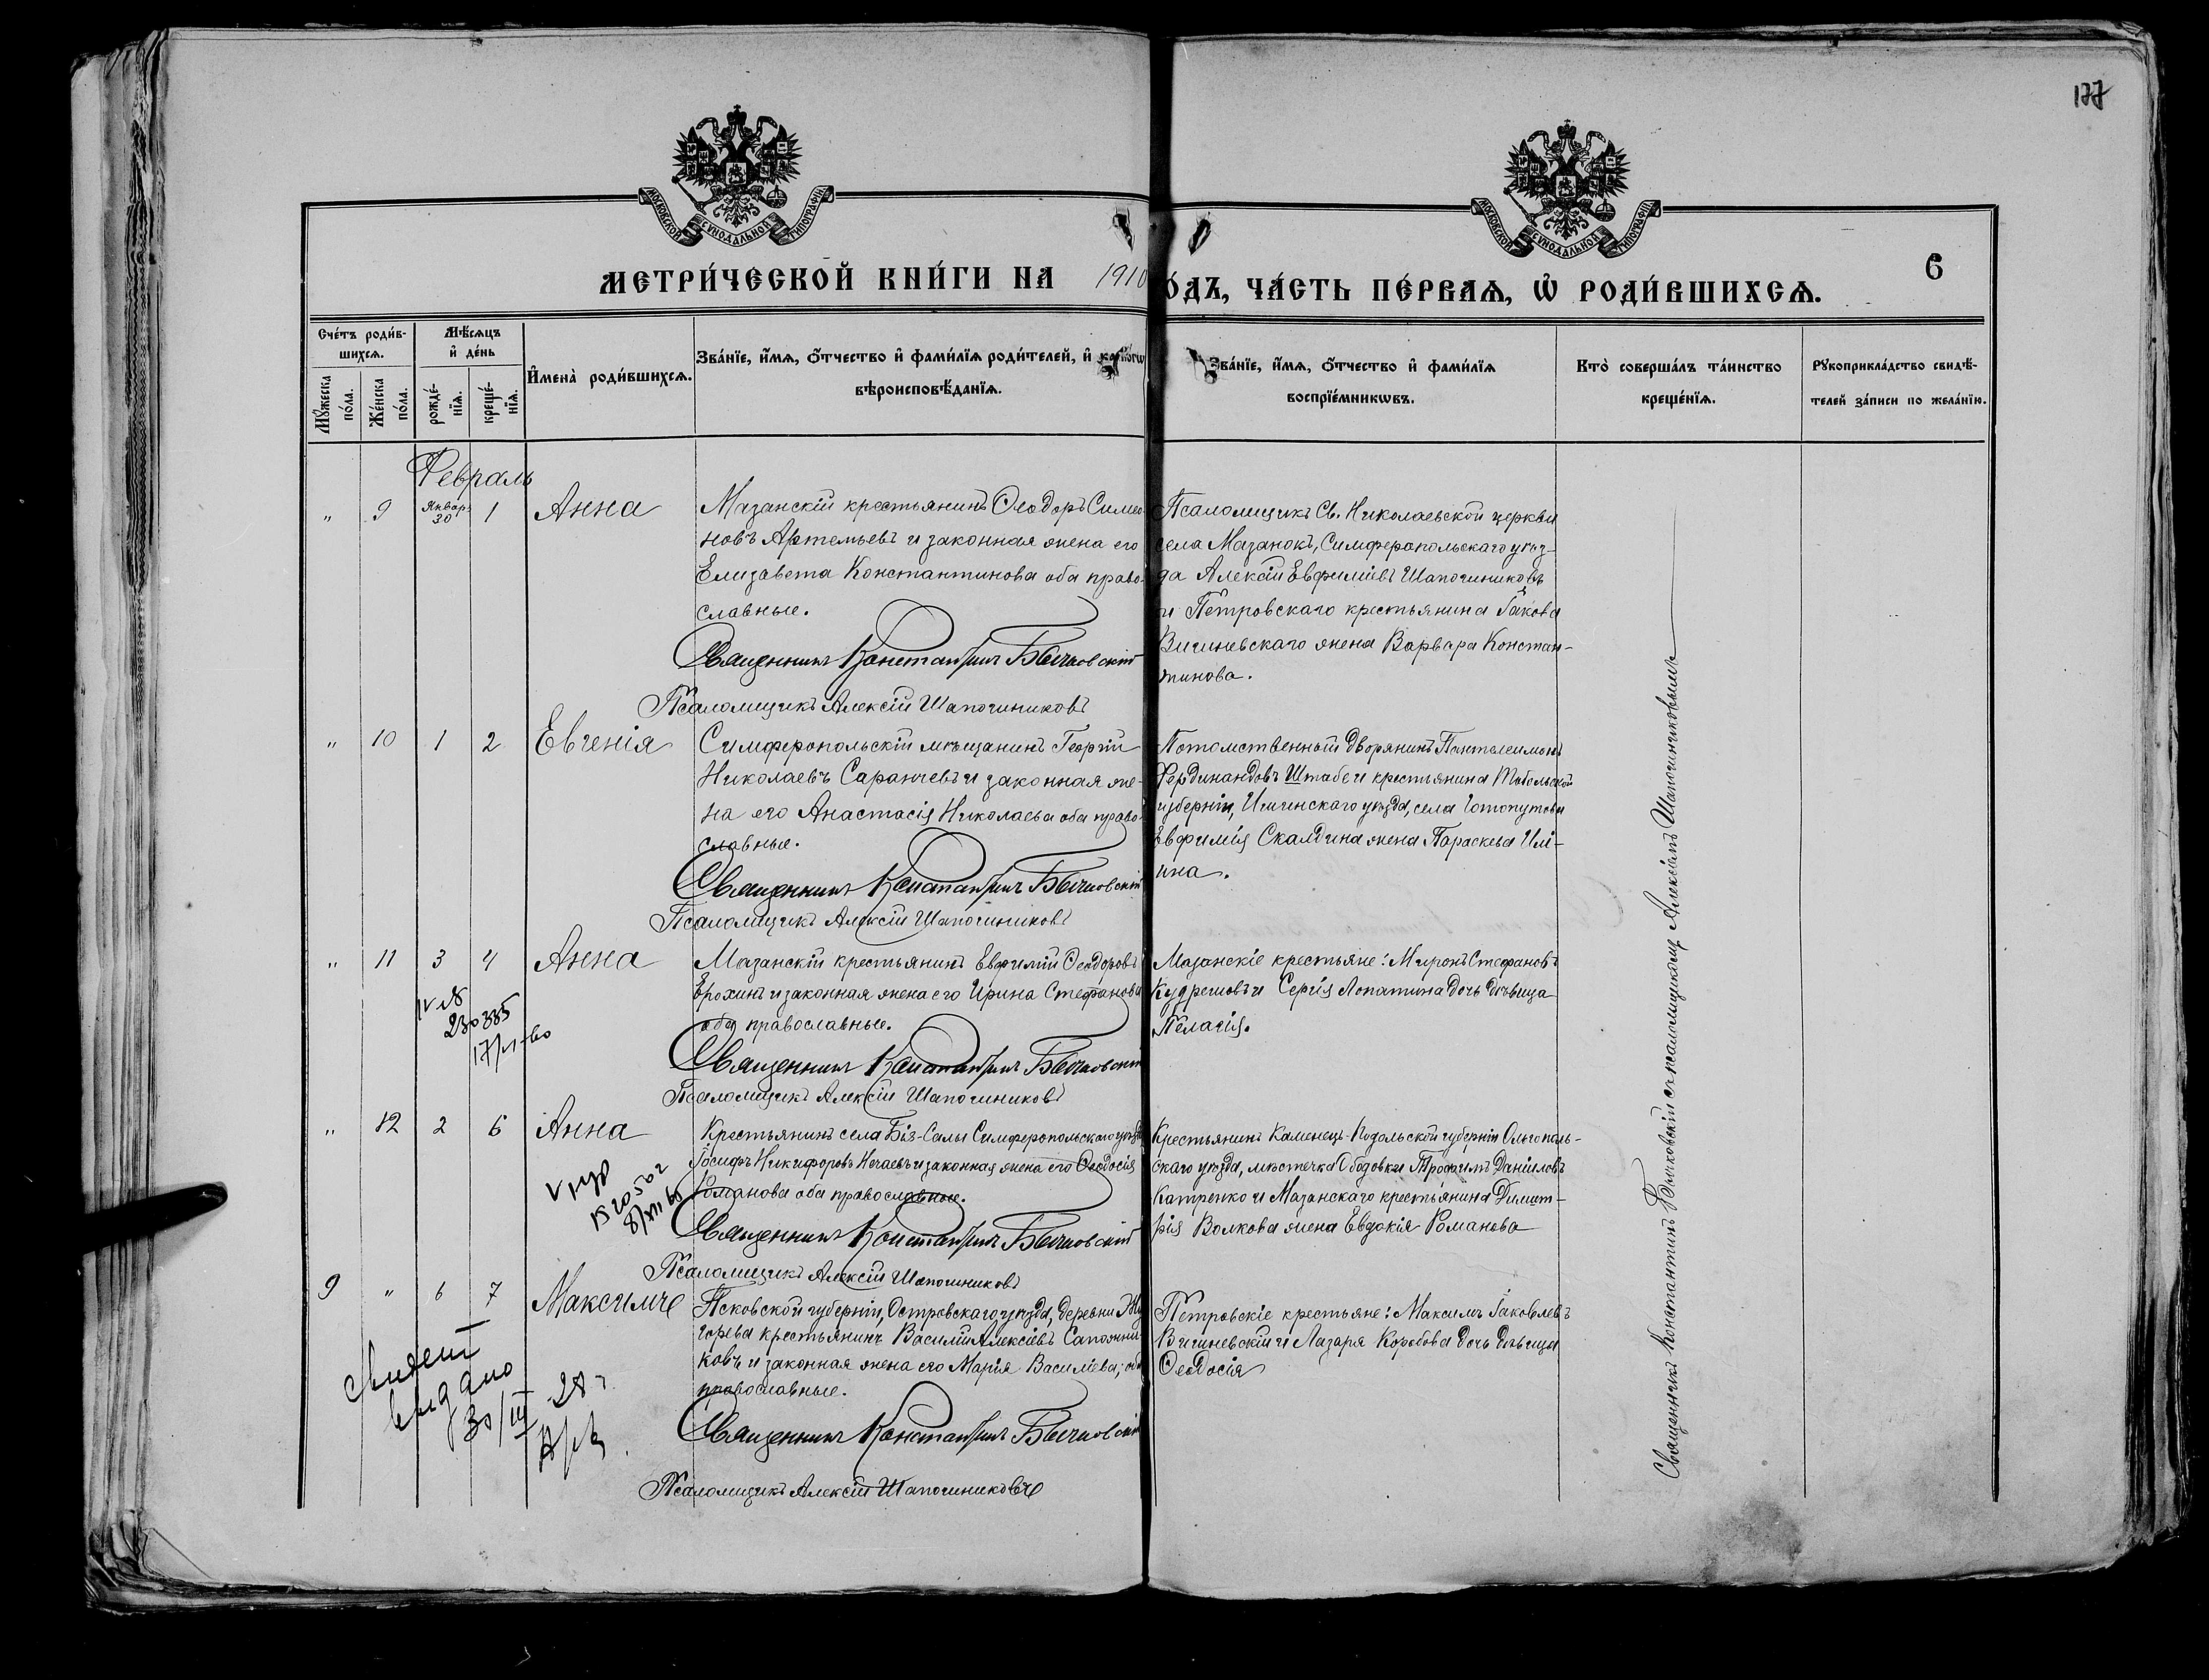 177
МОСКОВСКОЙ СѴНОДАЛЬНОЙ ТИПОГРАФІИ
МОСКОВСКОЙ СѴНОДАЛЬНОЙ ТИПОГРАФІИ
МЕТРИ́ЧЕСКОЙ КНИ́ГИ НА 1910
О́ДЪ, ЧА́СТЬ ПЕ́РВАѦ, Ѡ҆ РОДИ́ВШИХСѦ.
6
Сче́тъ роди́в-
шихсѧ.
Мꙋ́жеска по́ла.
Же́нска по́ла.
Мѣ́сѧцъ и҆ де́нь
рожде́-нїѧ.
креще́-нїѧ.
И҆мена̀ роди́вшихсѧ.
Зва́нїе, и҆́мѧ, ѻ҆́тчество и҆ фами́лїѧ роди́телей, и҆
вѣроисповѣ́данїѧ.
Зва́нїе, и҆́мѧ, ѻ҆́тчество и҆ фами́лїѧ
воспрїе́мникѡвъ.
Кто̀ соверша́лъ та́инство
креще́нїѧ.
Рꙋкоприкла́дство свидѣ́-
телей за́писи по жела́нїю.
Февраль
" 9 Январь 30 1 Анна
Мазанскій крестьянинъ Ѳеодоръ Симео-
новъ Артемьевъ и законная жена его
Елизавета Константинова оба право-
славные.
Священникъ Константинъ Бычковскій
Псаломщикъ Алексій Шапошниковъ
Псаломщикъ Св. Николаевской церкви
села Мазанокъ, Симферопольскаго уѣз-
да Алексій Евфиміевъ Шапошниковъ
и Петровскаго крестьянина Іакова
Вишневскаго жена Варвара Констан-
тинова.
" 10 1 2 Евгенія
Симферопольскій мѣщанинъ Георгій
Николаевъ Саранчевъ и законная же-
на его Анастасія Николаева оба право-
славные.
Священникъ Константинъ Бычковскій
Псаломщикъ Алексій Шапошниковъ
Потомственный дворянинъ Пантелеимонъ
Фердинандовъ Штабе и крестьянина Тобольской
губерніи, Ишимскаго уѣзда, села Готопутова
Евфимія Скалдина жена Параскева Илі-
ина.
" 11 3 4 Анна
Мазанскій крестьянинъ Евфимій Ѳеодоровъ
Ерохинъ и законная жена его Ирина Стефанова
оба православные.
Священникъ Константинъ Бычковскій
Псаломщикъ Алексій Шапошниковъ
Мазанскіе крестьяне: Миронъ Стефановъ
Кудряшовъ и Сергія Лопатина дочь дѣвица
Пелагія.
" 12 2 6 Анна
Крестьянинъ села Біз-Салы Симферопольскаго уѣзда
Іосифъ Никифоровъ Нечаевъ и законная жена его Ѳеодосія
Романова оба православные.
Священникъ Константинъ Бычковскій
Псаломщикъ Алексій Шапошниковъ
Крестьянинъ Каменецъ-Подольской губерніи Ольгополь-
скаго уѣзда, мѣстечка Ободовки Трофимъ Даніиловъ
Катренко и Мазанскаго крестьянина Димит-
рія Волкова жена Евдокія Романова
9 " 6 7 Максимъ
Псковской губерніи, Островскаго уѣзда, деревни
горева крестьянинъ Василій Алексіевъ Сапожни-
ковъ и законная жена его Марія Василіева, оба
православные.
Священникъ Константинъ Бычковскій
Псаломщикъ Алексій Шапошниковъ
Петровскіе крестьяне: Максимъ Іаковлевъ
Вишневскій и Лазаря Коробова дочь дѣвица
Ѳеодосія
выдано
30/III 28 г.
Священникъ Константинъ Бычковскій съ псаломщикомъ Алексіемъ Шапошниковымъ